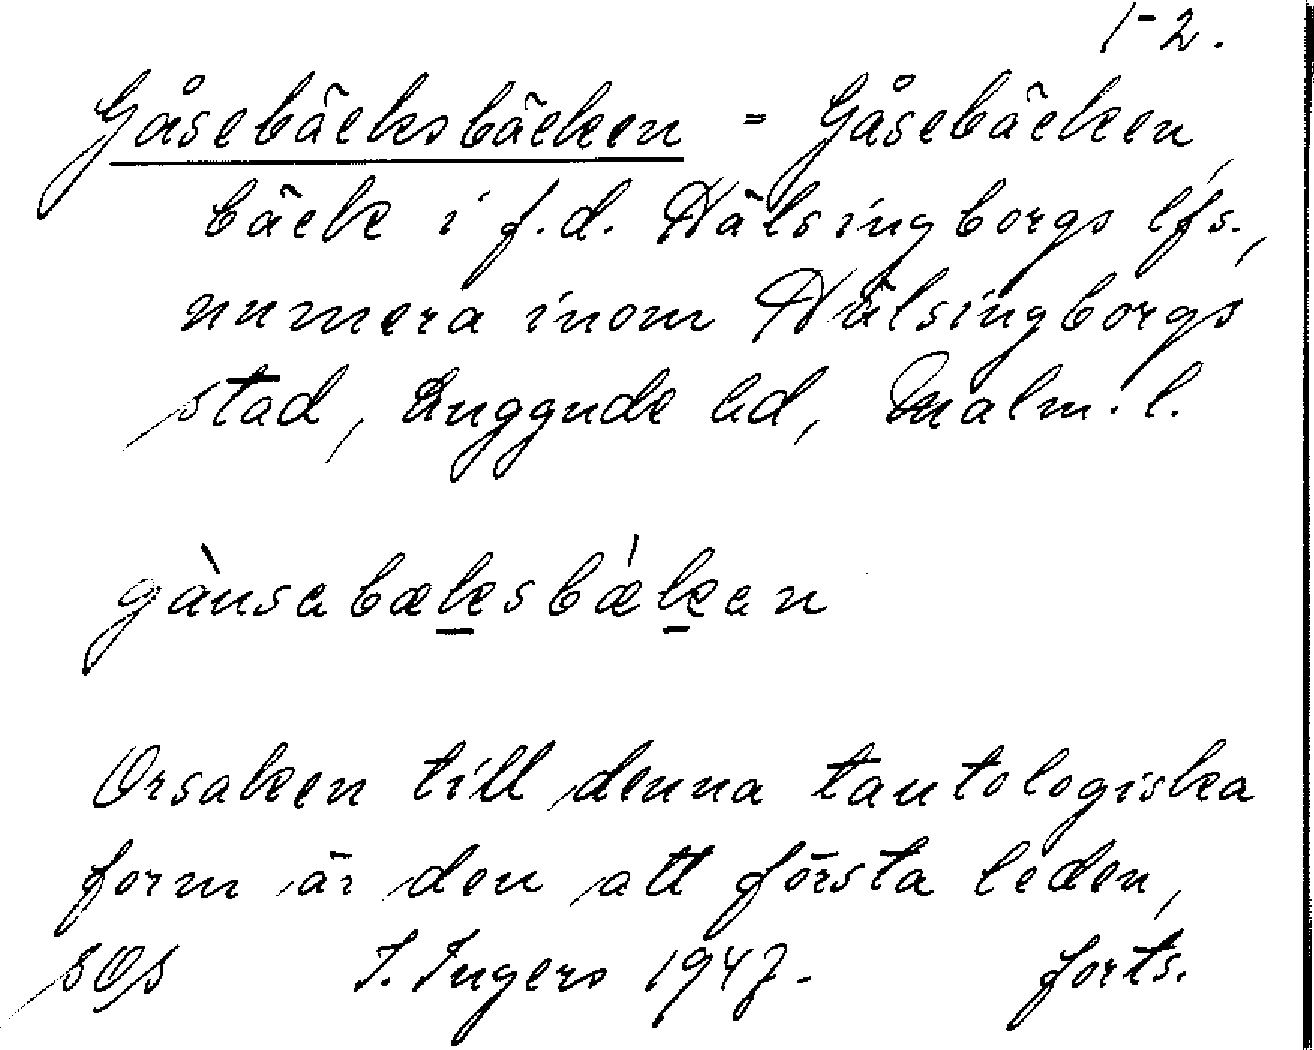 1-2.
Gåsebäcksbäcken = Gåsebäcken,
bäck i f.d. Hälsingborgs lfs.,
numera inom Hälsingborgs
stad, Luggude hd, Malm. l.
gànsabæksbækan
Orsaken till denna tautologiska
form är den att första leden,
sOs I. Ingers 1947. forts.